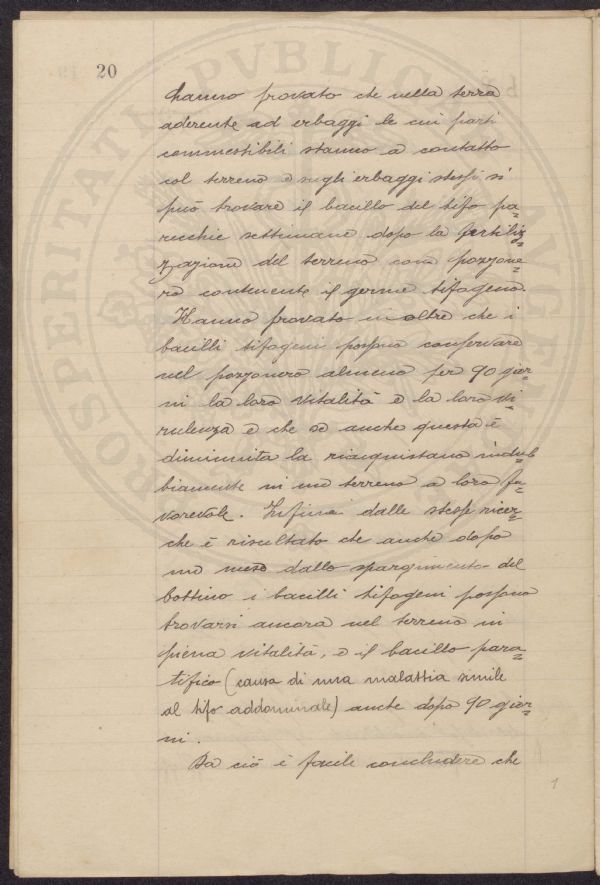 20
hanno provato che nella terra
aderente ad erbaggi le cui parti
commestibili stanno a contatto
col terreno e sugli erbaggi stessi si
può trovare il bacillo del tifo pa-
recchie settimane dopo la fertiliz-
zazione del terreno con pozzone-
ro contenente il germe tifogeno.
Hanno provato inoltre che i
bacilli tifogeni possono conservare
nel pozzonero almeno per 90 gior-
ni la loro vitalità e la loro vi-
rulenza e che se anche questa è
diminuita la riacquistano indub
biamente in un terreno a loro fa-
vorevole. Infine dalle stesse ricer-
che è risultato che anche dopo
un mese dallo spargimento del
bottino i bacilli tifogeni possono
trovarsi ancora nel terreno in
piena vitalità, e il bacillo para-
tifico (causa di una malattia simile
al tifo addominale) anche dopo 90 gior-
ni.
Da ciò è facile concludere che
1
PROSPERITATI PVBLICAE